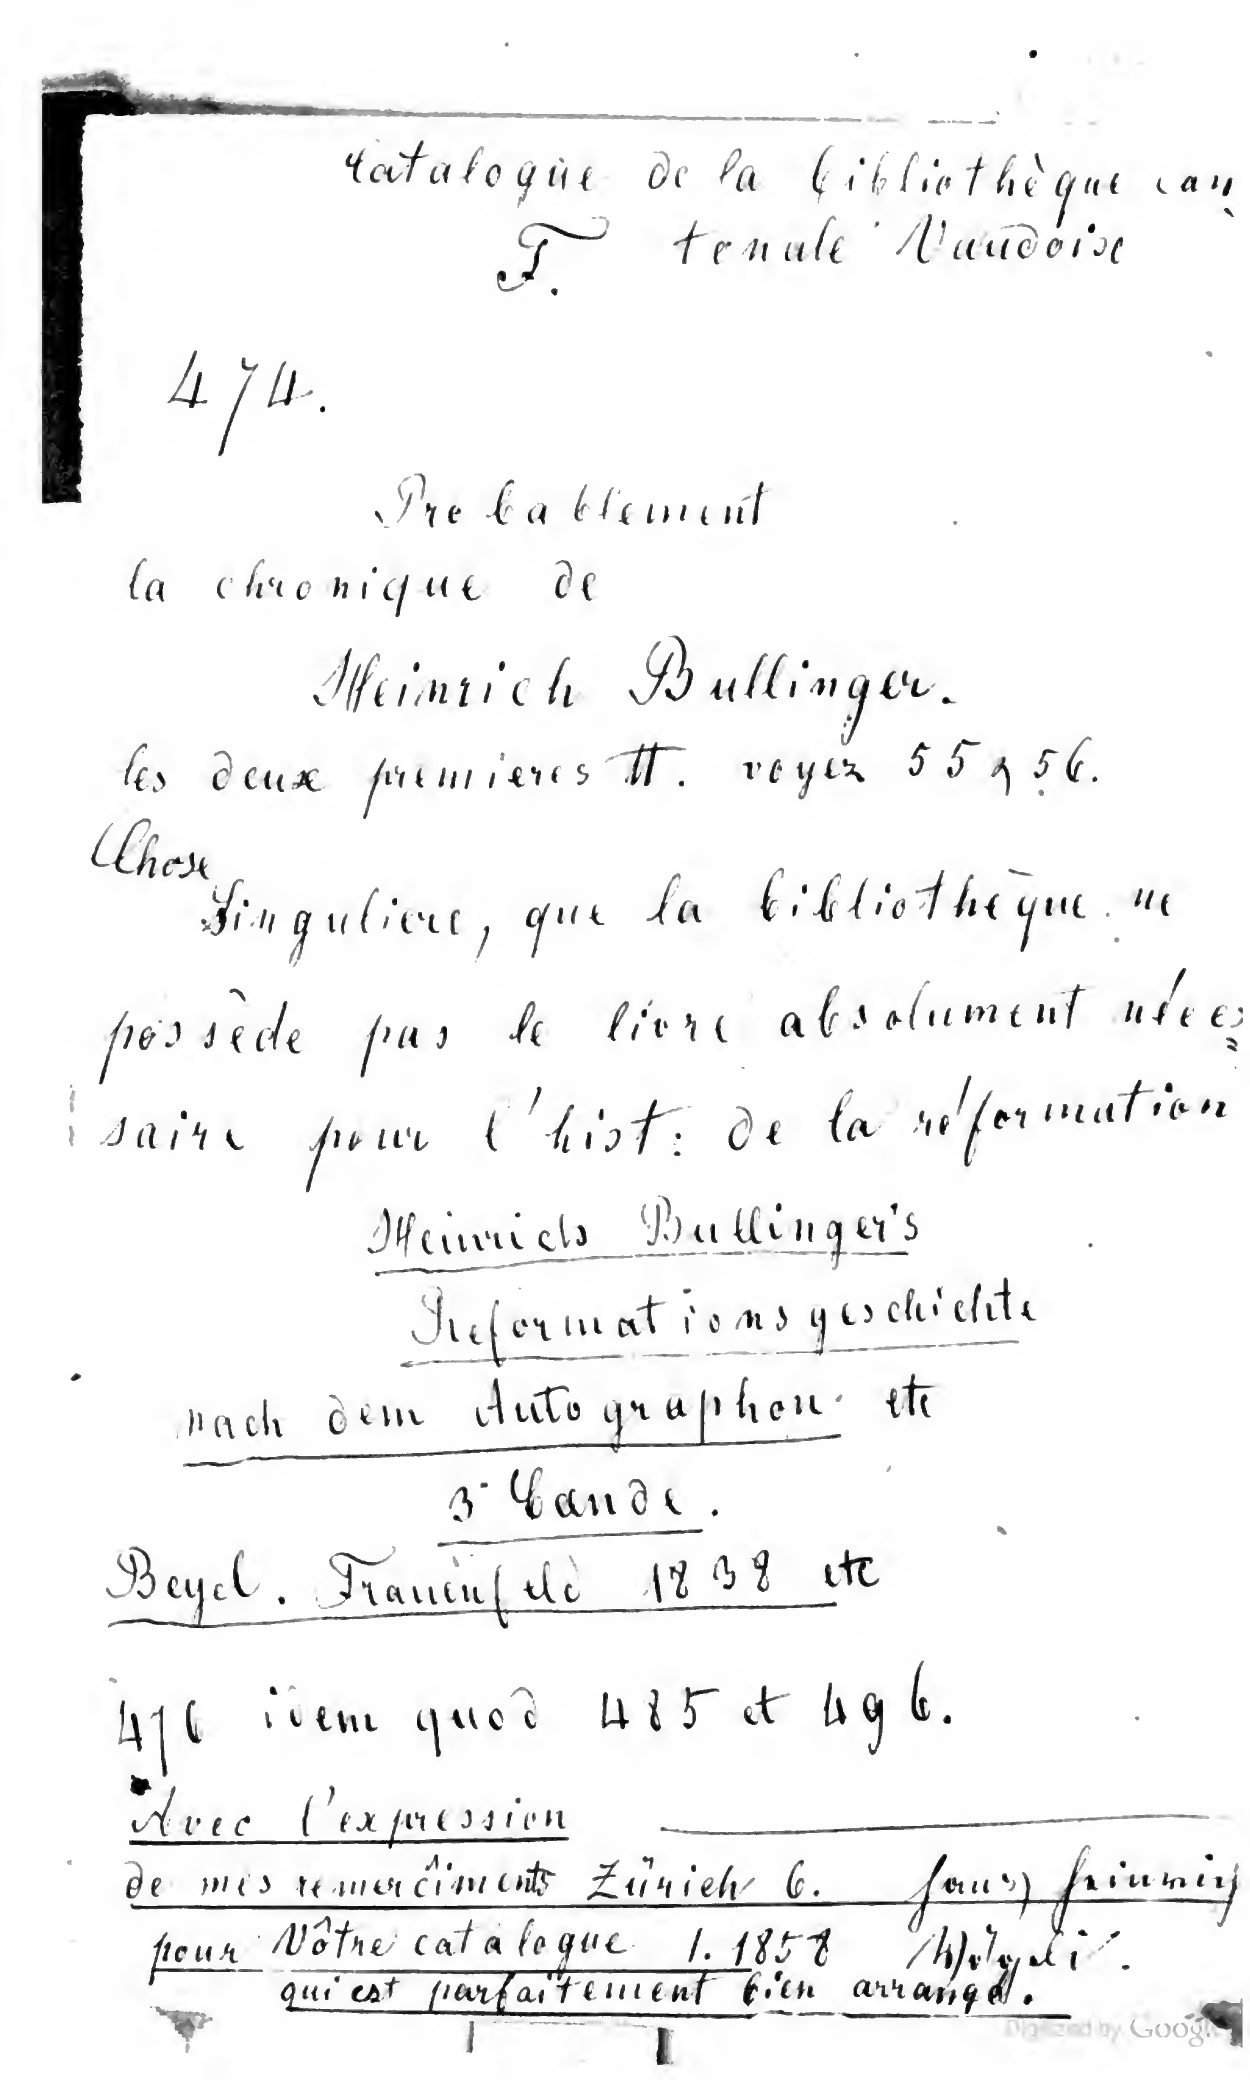 Catalogue de la bibliothèque can
F. tonale Vaudoise
474.
Probablement
la chronique de
Heinrich Bullinger.
les deux premieres tt. voyez 55 & 56.
Chose
Singuliere, que la bibliothèque ne
possède pas le livre absolument néces
saire pour l'hist: de la réformation
Heinrichs Bullinger's
Reformationsgeschichte
nach dem Autographon etc
3 Bände.
Beyel. Frauenfeld 1838 etc
476 idem quod 485 et 496.
Avec l'expression
de mes remerciments Zürich 6. Hans Heinrich
pour Vôtre catalogue 1. 1858
qui est parfaitement bien arrangé.
Digitized by Google